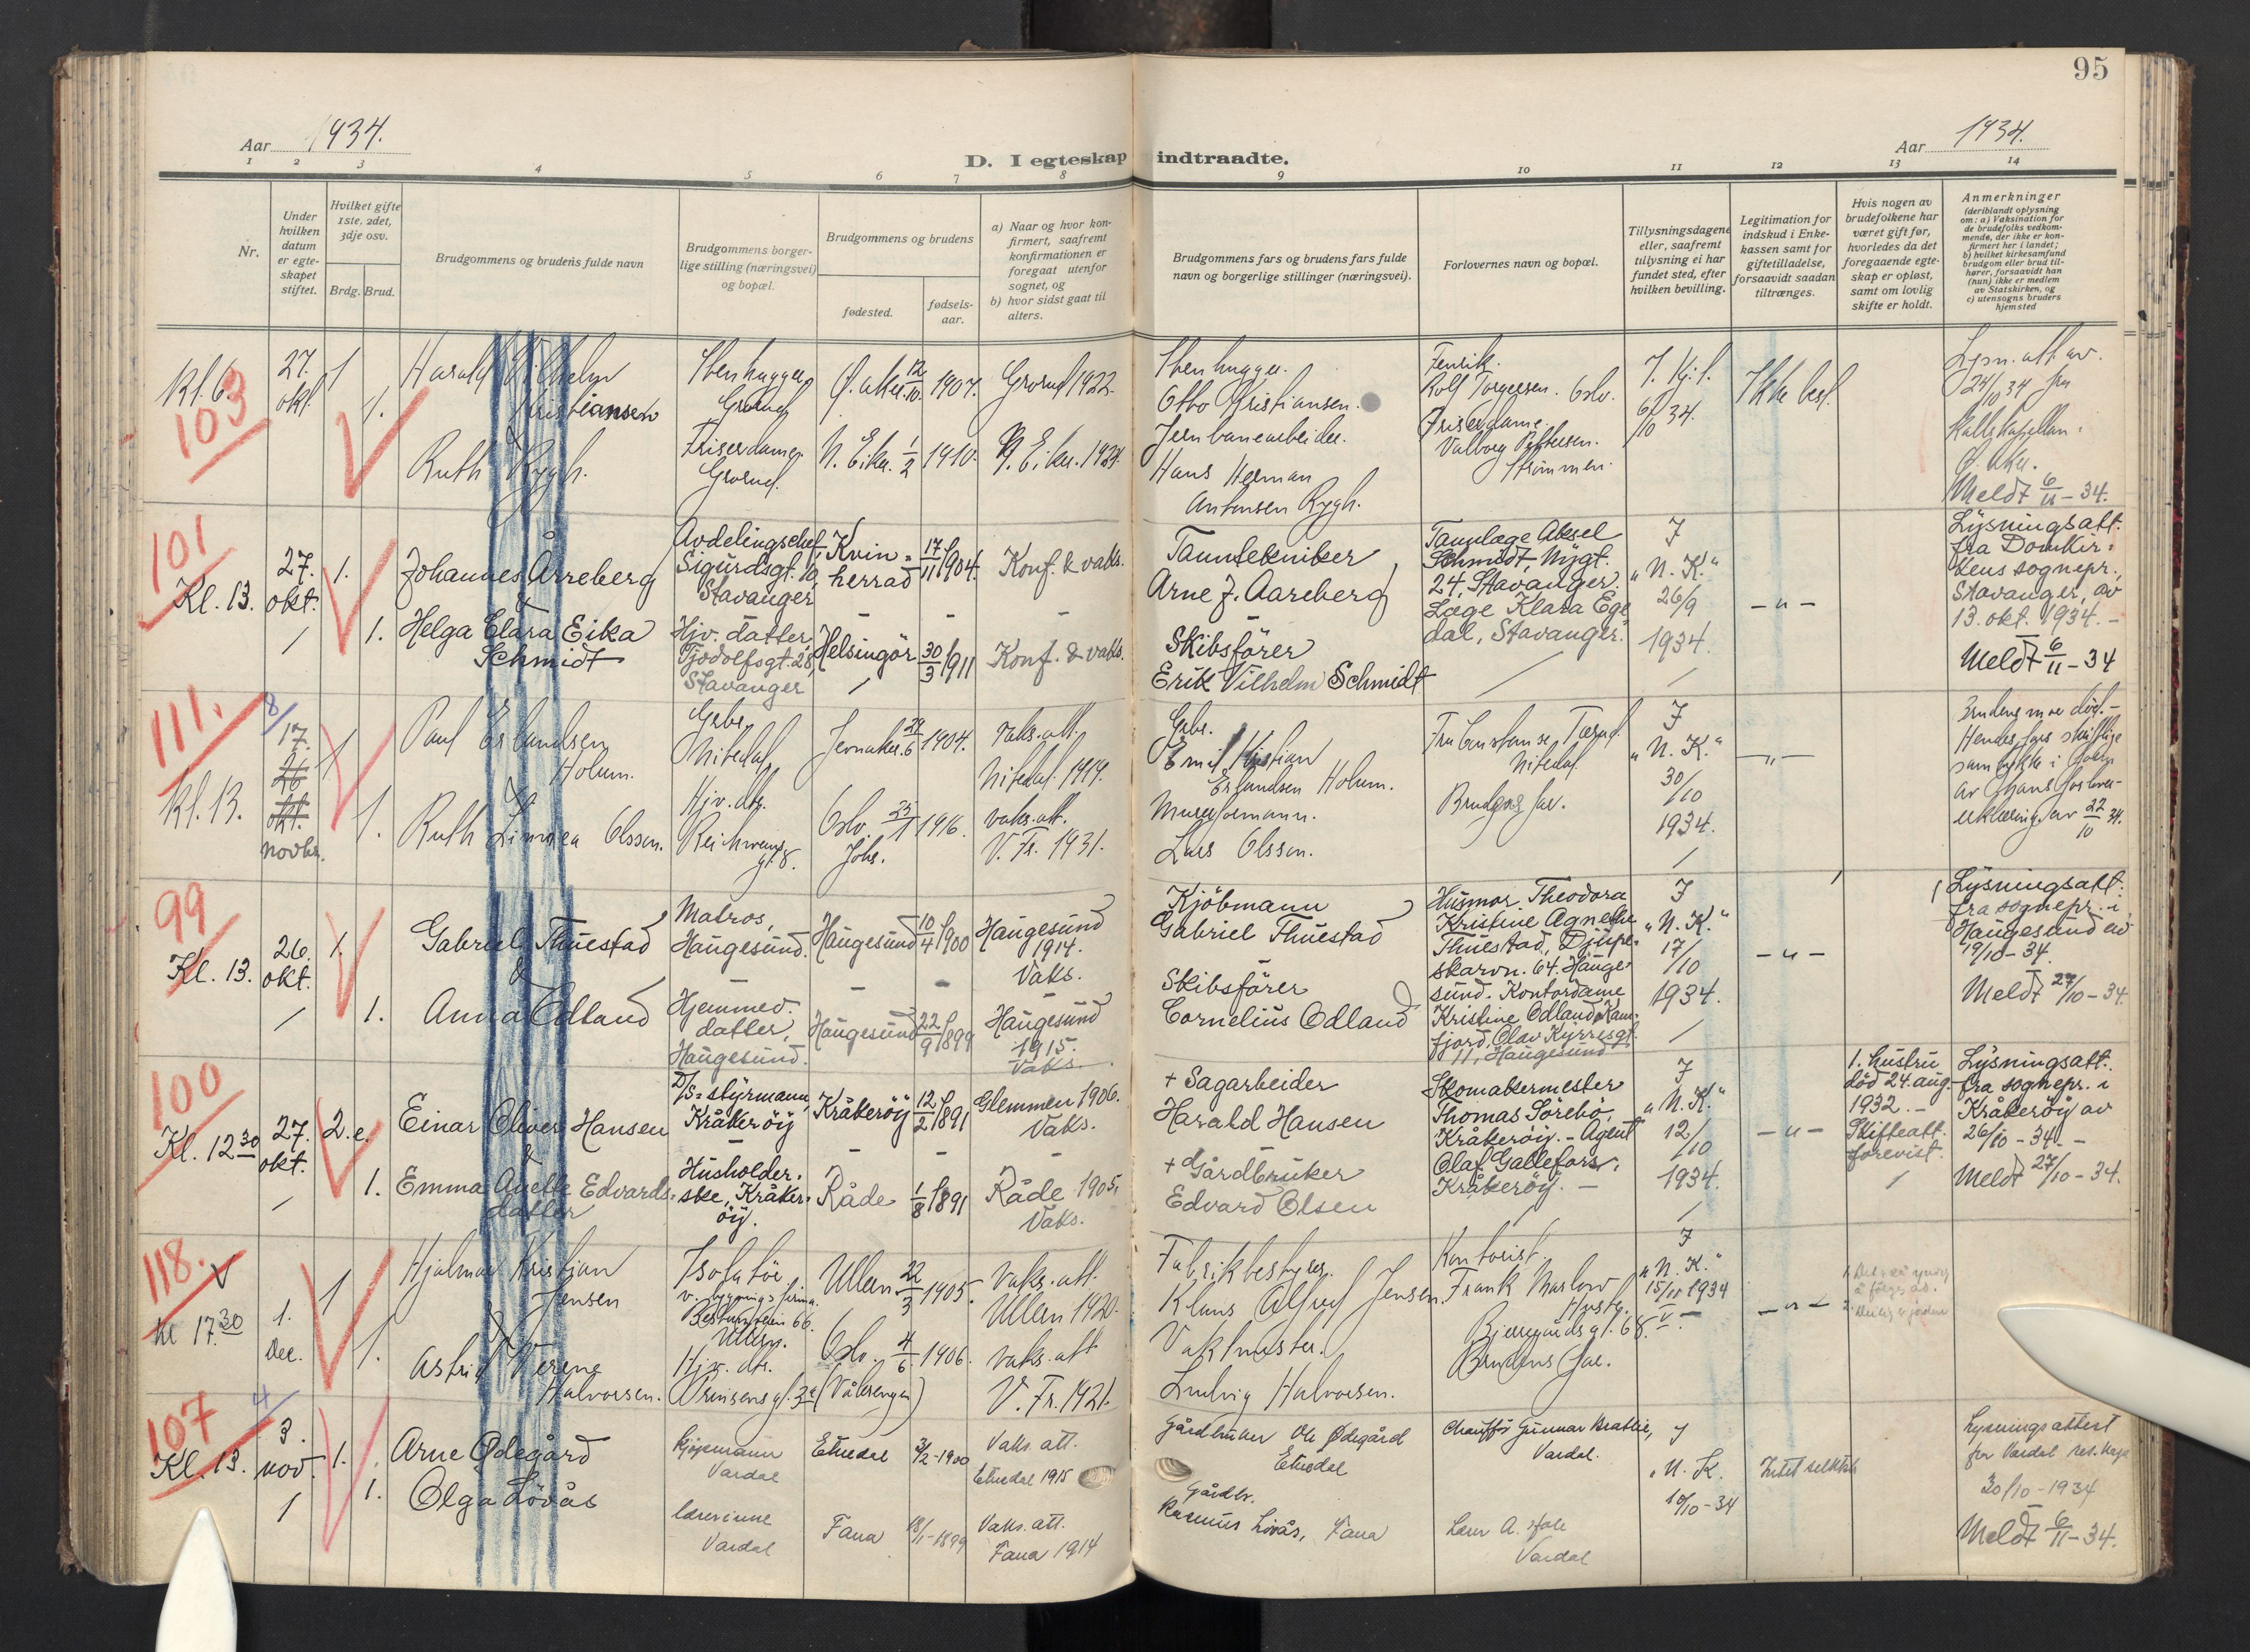 95
Aar 1934.
D. I egteskap indtraadte.
Aar 1934.
1 2 3 4 5 6 7 8 9 10 11 12 13 14
Nr.
Under
hvilken
datum
er egte-
skapet
stiftet.
Hvilket gifte
1ste, 2det,
3dje osv.
Brdg. Brud.
Brudgommens og brudens fulde navn
Brudgommens borger-
lige stilling (næringsvei)
og bopæl.
Brudgommens og brudens
fødested.
fødsels-
aar.
a) Naar og hvor kon-
firmert, saafremt
konfirmationen er
foregaat utenfor
sognet, og
b) hvor sidst gaat til
alters.
Brudgommens fars og brudens fars fulde
navn og borgerlige stillinger (næringsvei).
Forlovernes navn og bopæl.
Tillysningsdagene
eller, saafremt
tillysning ei har
fundet sted, efter
hvilken bevilling.
Legitimation for
indskud i Enke-
kassen samt for
giftetilladelse,
forsaavidt saadan
tiltrænges.
Hvis nogen av
brudefolkene har
været gift før,
hvorledes da det
foregaaende egte-
skap er opløst,
samt om lovlig
skifte er holdt.
Anmerkninger
(deriblandt oplysning
om: a) Vaksination for
de brudefolks vedkom-
mende, der ikke er kon-
firmert her i landet;
b) hvilket kirkesamfund
brudgom eller brud til-
hører, forsaavidt han
(hun) ikke er medlem
av Statskirken, og
c) utensogns bruders
hjemsted
Kl. 6.
103
27.
okt.
1
1.
Harald Vilhelm
Kristiansen
&
Ruth Rygh.
Stenhugger,
Grorud
Friserdame.
Grorud.
Ø. Aker. 12/10 1907.
N. Eiker. 1/2 1910.
Grorud 1922.
N. Eiker. 1924.
Stenhugger.
Otto Kristiansen.
Jernbanearbeider.
Hans Herman
Antonsen Rygh.
Fenrik.
Rolf Torgersen. Oslo.
Friserdame.
Valborg Pettersen.
Strømmen.
6/10 34.
Ikke best.
Lysn. att. av.
24/10 34 fra
Ø. Aker.
Meldt 6/11 - 34.
101
Kl. 13.
27.
okt.
1.
1.
Johannes Årreberg
&
Helga Clara Eika
Schmidt
Avdelingschef
Sigurdsgt. 10,
Stavanger
Hjv. datter,
Tjodolfsgt. 28,
Stavanger
Kvin=
herrad
17/11 1904.
Helsingör 30/3 1911
Konf. & vaks.
Konf. & vaks.
Tanntekniker
Arne J. Aareberg
Skibsförer
Erik Vilhelm Schmidt
Tannlæge Aksel
Schmidt, Nygt.
24, Stavanger.
Læge Klara Ege
dal, Stavanger.
I
"N. K."
26/9
1934.
- " -
Lysningsatt.
fra Domkir=
kens sognepr.,
Stavanger, av
13. okt. 1934. -
Meldt 6/11 - 34
111.
Kl. 13.
8/
17.
26
okt.
novbr.
1
1.
Paul Erlandsen
Holum.
&
Ruth Linnea Olssen.
Gbr.
Nitedal,
Hjv. dtr.
Jevnaker 6 1904.
Oslo 25/1 1916.
Vaks. att.
Nitedal 1919.
vaks. att.
V. Fr. 1931.
Gbr.
Emil Kristian
Erlandsen Holum.
Murerformann.
Lars Olssen.
Nitedal.
Brudens far.
I
"N. K."
30/10
1934.
- " -
Brudens mor död. -
Hendes fars skriftlige
samtykke i
av
erklæring av 22/10 34.
99
Kl. 13.
26.
okt.
1.
1.
Gabriel Thuestad
&
Anna Odland
Matros,
Haugesund.
Hjemmev.
datter,
Haugesund.
Haugesund 10/4 1900
Haugesund 22/9 1899
Haugesund
1914.
Vaks.
Haugesund
1915.
Vaks.
Kjöbmann
Gabriel Thuestad
Skibsförer
Cornelius Odland
Husmor Theodora
Kristine Agnethe
Thuestad, Djupe=
skarvn. 64. Hauge=
sund. Kontordame
Kristine Odland Ram-
fjord, Olav Kyrresgt.
11, Haugesund
I
"N. K."
17/10
1934.
- " -
Lysningsatt.
fra sognepr. i
Haugesund av
19/10 - 34.
Meldt 27/10 - 34.
100
Kl. 12 30
27.
okt.
2. e.
1.
Einar Oliver Hansen
&
Emma Anette Edvards=
datter
D/S=styrmann,
Kråkeröy
Husholder=
ske, Kråker=
öy.
Kråkeröy 12/2 1891
Råde 1/8 1891
Glemmen 1906.
Vaks.
Råde 1905,
Vaks.
+ Sagarbeider
Harald Hansen
+ Gårdbruker
Edvard Olsen
Skomakermester
Thomas Sörebö,
Kråkeröy. - Agent
Olaf Gallefoss,
Kråkeröy. -
I
"N. K."
12/10
1934.
- " -
1. hustru
död 24. aug.
1932. -
Skifteatt.
forevist.
Lysningsatt.
fra sognepr. i
Kråkeröy av
26/10 - 34. -
Meldt 27/10 - 34.
118.
Kl 17.30
1.
Dec.
1
1.
Hjalmar Kristian
Jensen
&
Astrid Verene
Halvorsen.
Isolatör
v. bygningsfirma.
Bestumveien 66.
Ullern.
Hjv. dtr.
Ullern. 22/3 1905.
Oslo 4/6 1906.
(Vålerengen)
Vaks. att.
Ullern 1920.
vaks. att
V. Fr. 1921.
Fabrikbestyrer.
Klaus Alfred Jensen.
Vaktmester.
Ludvig Halvorsen.
Kontorist.
Frank Marlow
Bjerregårds gt. 68.
Brudens far.
I
"N. K."
15/11 1934
- " -
107
Kl. 13.
4/
3.
nov.
1.
1.
Arne Ødegård
Olga Lövås
Kjøpmann
Vardal
lærerinne
Vardal
Etnedal 3/2-1900
Fana 18/11-1899
Vaks. att.
Etnedal 1915
Vaks. att.
Fana 1914
Gårdbruker Ole Ødegård
Etnedal
Gårdbr.
Rasmus Lövås, Fana
Chauffør Gunnar Bratlie,
Vardal.
Lærer A.
Vardal
I
"N. K.
10/10-34
Intet
Lysningsattest
fra Vardal res. kap.
30/10-1934
Meldt 6/11 - 34.